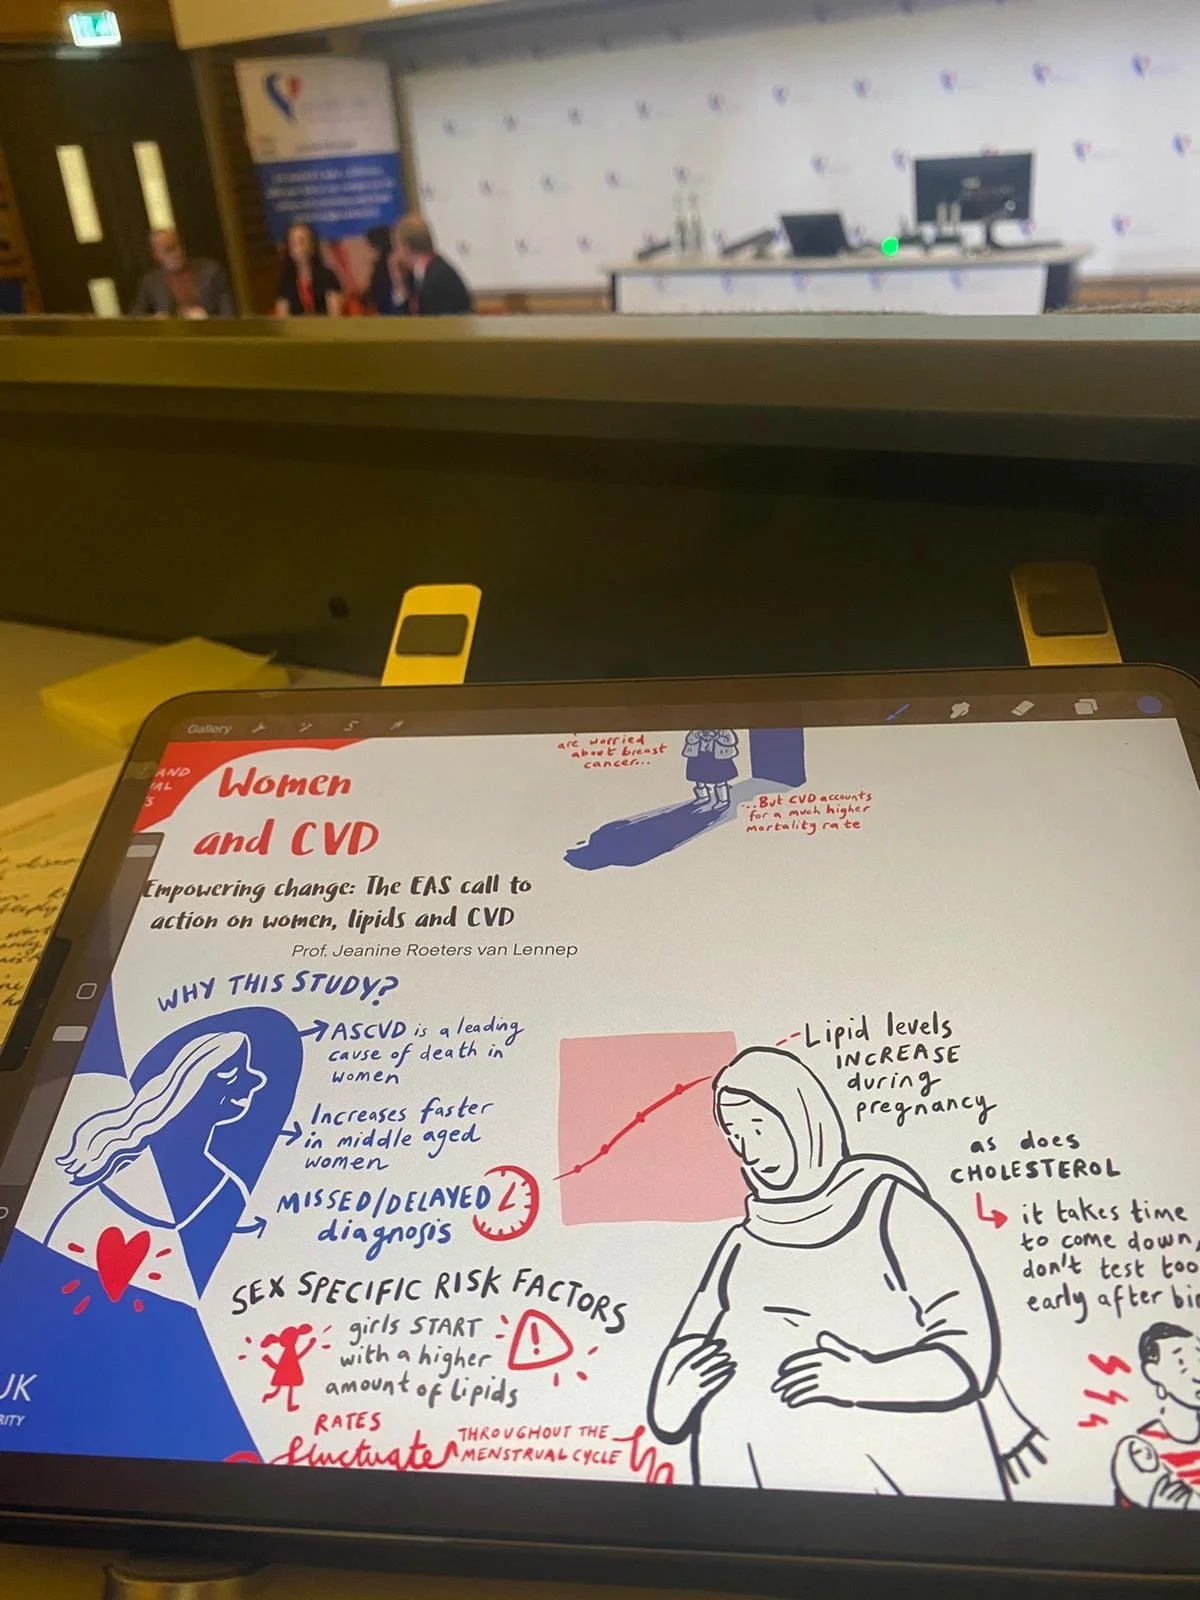 Gallery
AND
AL
S
Women
and CVD
Empowering change: The EAS call to
action on women, lipids and CVD
Prof. Jeanine Roeters van Lennep
are worried
about breast
cancer...
...But CVD accounts
for a much higher
mortality rate
WHY THIS STUDY?
ASCVD is a leading
cause of death in
women
Increases faster
in middle aged
women
MISSED/DELAYED
diagnosis
SEX SPECIFIC RISK FACTORS
girls START
with a higher
amount of lipids
!
RATES
fluctuate
THROUGHOUT THE
MENSTRUAL CYCLE
Lipid levels
INCREASE
during
pregnancy
as does
CHOLESTEROL
it takes time
to come down,
don't test too
early after bir
UK
RITY